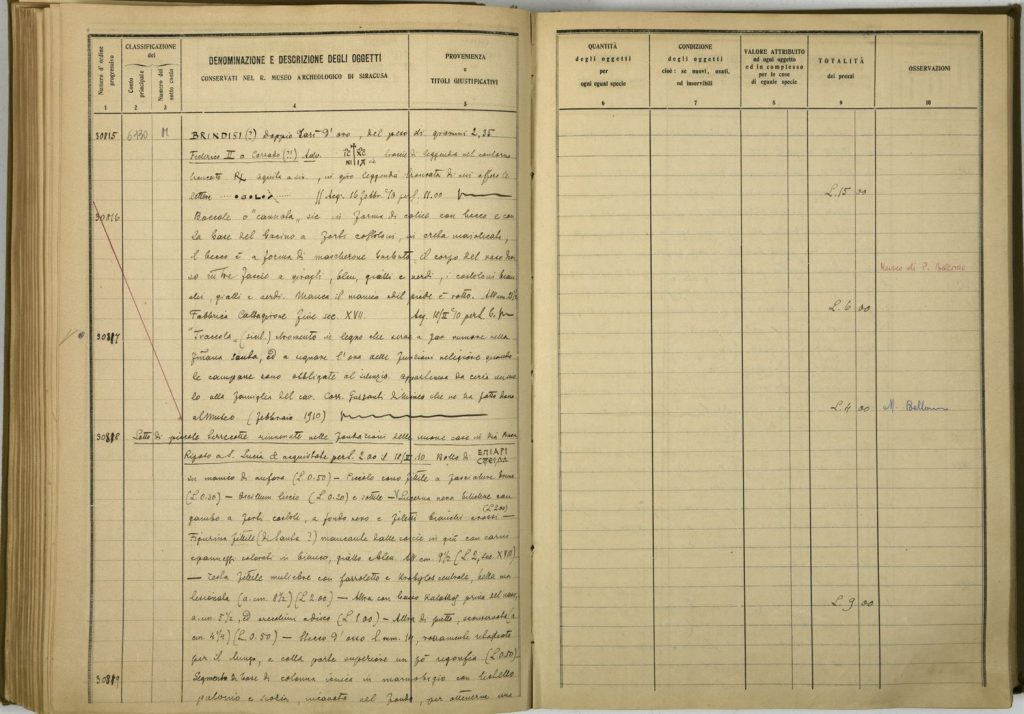 Numero d'ordine progressivo
CLASSIFICAZIONE
del
Conto principale
Numero del sotto conto
DENOMINAZIONE E DESCRIZIONE DEGLI OGGETTI
CONSERVATI NEL R. MUSEO ARCHEOLOGICO DI SIRACUSA
PROVENIENZA
e
TITOLI GIUSTIFICATIVI
1 2 3 4 5
30815 6930 M BRINDISI (?) Doppio Tarì d'oro, del peso di grammi 2,35
Federico II o Corrado (?!) Adv. traccie di leggenda nel contorno
troncato R/ aquila a sin., in giro leggenda troncata di cui affiora le
lettere // Acq. 16 Febbr. 10 per L. 15.00
30816 Boccale o "cannata" sic in forma di calice con becco e con
la base del bacino a forti costoloni, in creta maiolicata,
il becco è a forma di mascherone barbuto, il corpo del vaso
so in tre fascie a giragli, bleu, gialli e verdi, i costoloni bian
chi, gialli e verdi. Manca il manico ed il piede è rotto.
Fabbrica Caltagirone fine sec. XVII. Acq. 10/II 10 per L. 6.
30817 "Traccola" (sicil.) strumento in legno che serve a far rumore nella
settimana santa, ed a segnare l'ora delle funzioni religiose quando
le campane sono obbligate al silenzio. Apparteneva da circa un
lo alla famiglia del cav. Corr. di che ne ha fatto dono
al Museo (Febbraio 1910)
30818 Lotto di piccole terrecotte rinvenute nelle fondazioni delle nuove case in Via
Riposo a S. Lucia & acquistate per L. 9.00 il 18/II 10 Bollo di ΕΠΙΑΡΙ
su manico di anfora (L 0.50) — Piccolo vaso fittile a fasciature brune
(L 0.30) — Oscillum liscio (L 0.20) e sottile — Lucerna nera bilicne con
(L 2.00)
gambo a forti costoli, a fondo nero e filetti bianchi e rossi —
Figurina fittile (di Santa ?) mancante dalle coscie in giù con carni
e panneggi colorati in bianco, giallo e bleu. Alt. cm. 9½ (L. 2, sec. XVII)
— Testa fittile muliebre con fazzoletto e krobylos centrale, della ma
(a. cm. 8½) (L 2.00) — Altra con basso Kalathos priva del naso,
a. cm. 5½, ed orecchini a disco (L 1.00) — Altra di putto,
cm 4½) (L 0.50) — Stecco d'osso l. mm. 111,
per il lungo, e colla parte superiore un pò rigonfia (L 0.50).
30819 Segmento di base di colonna ionica in marmo bigio con listello
e scozia, incavata nel fondo, per ottenerne una
QUANTITÀ
degli oggetti
per
ogni egual specie
CONDIZIONE
degli oggetti
cioè: se nuovi, usati,
od inservibili
VALORE ATTRIBUITO
ad ogni oggetto
ed in complesso
per le cose
di eguale specie
TOTALITÀ
dei prezzi
OSSERVAZIONI
6 7 8 9 10
L. 15 00
Museo di P. Bellomo
L. 6 00
L. 4 00 M. Bellomo
L. 9 00